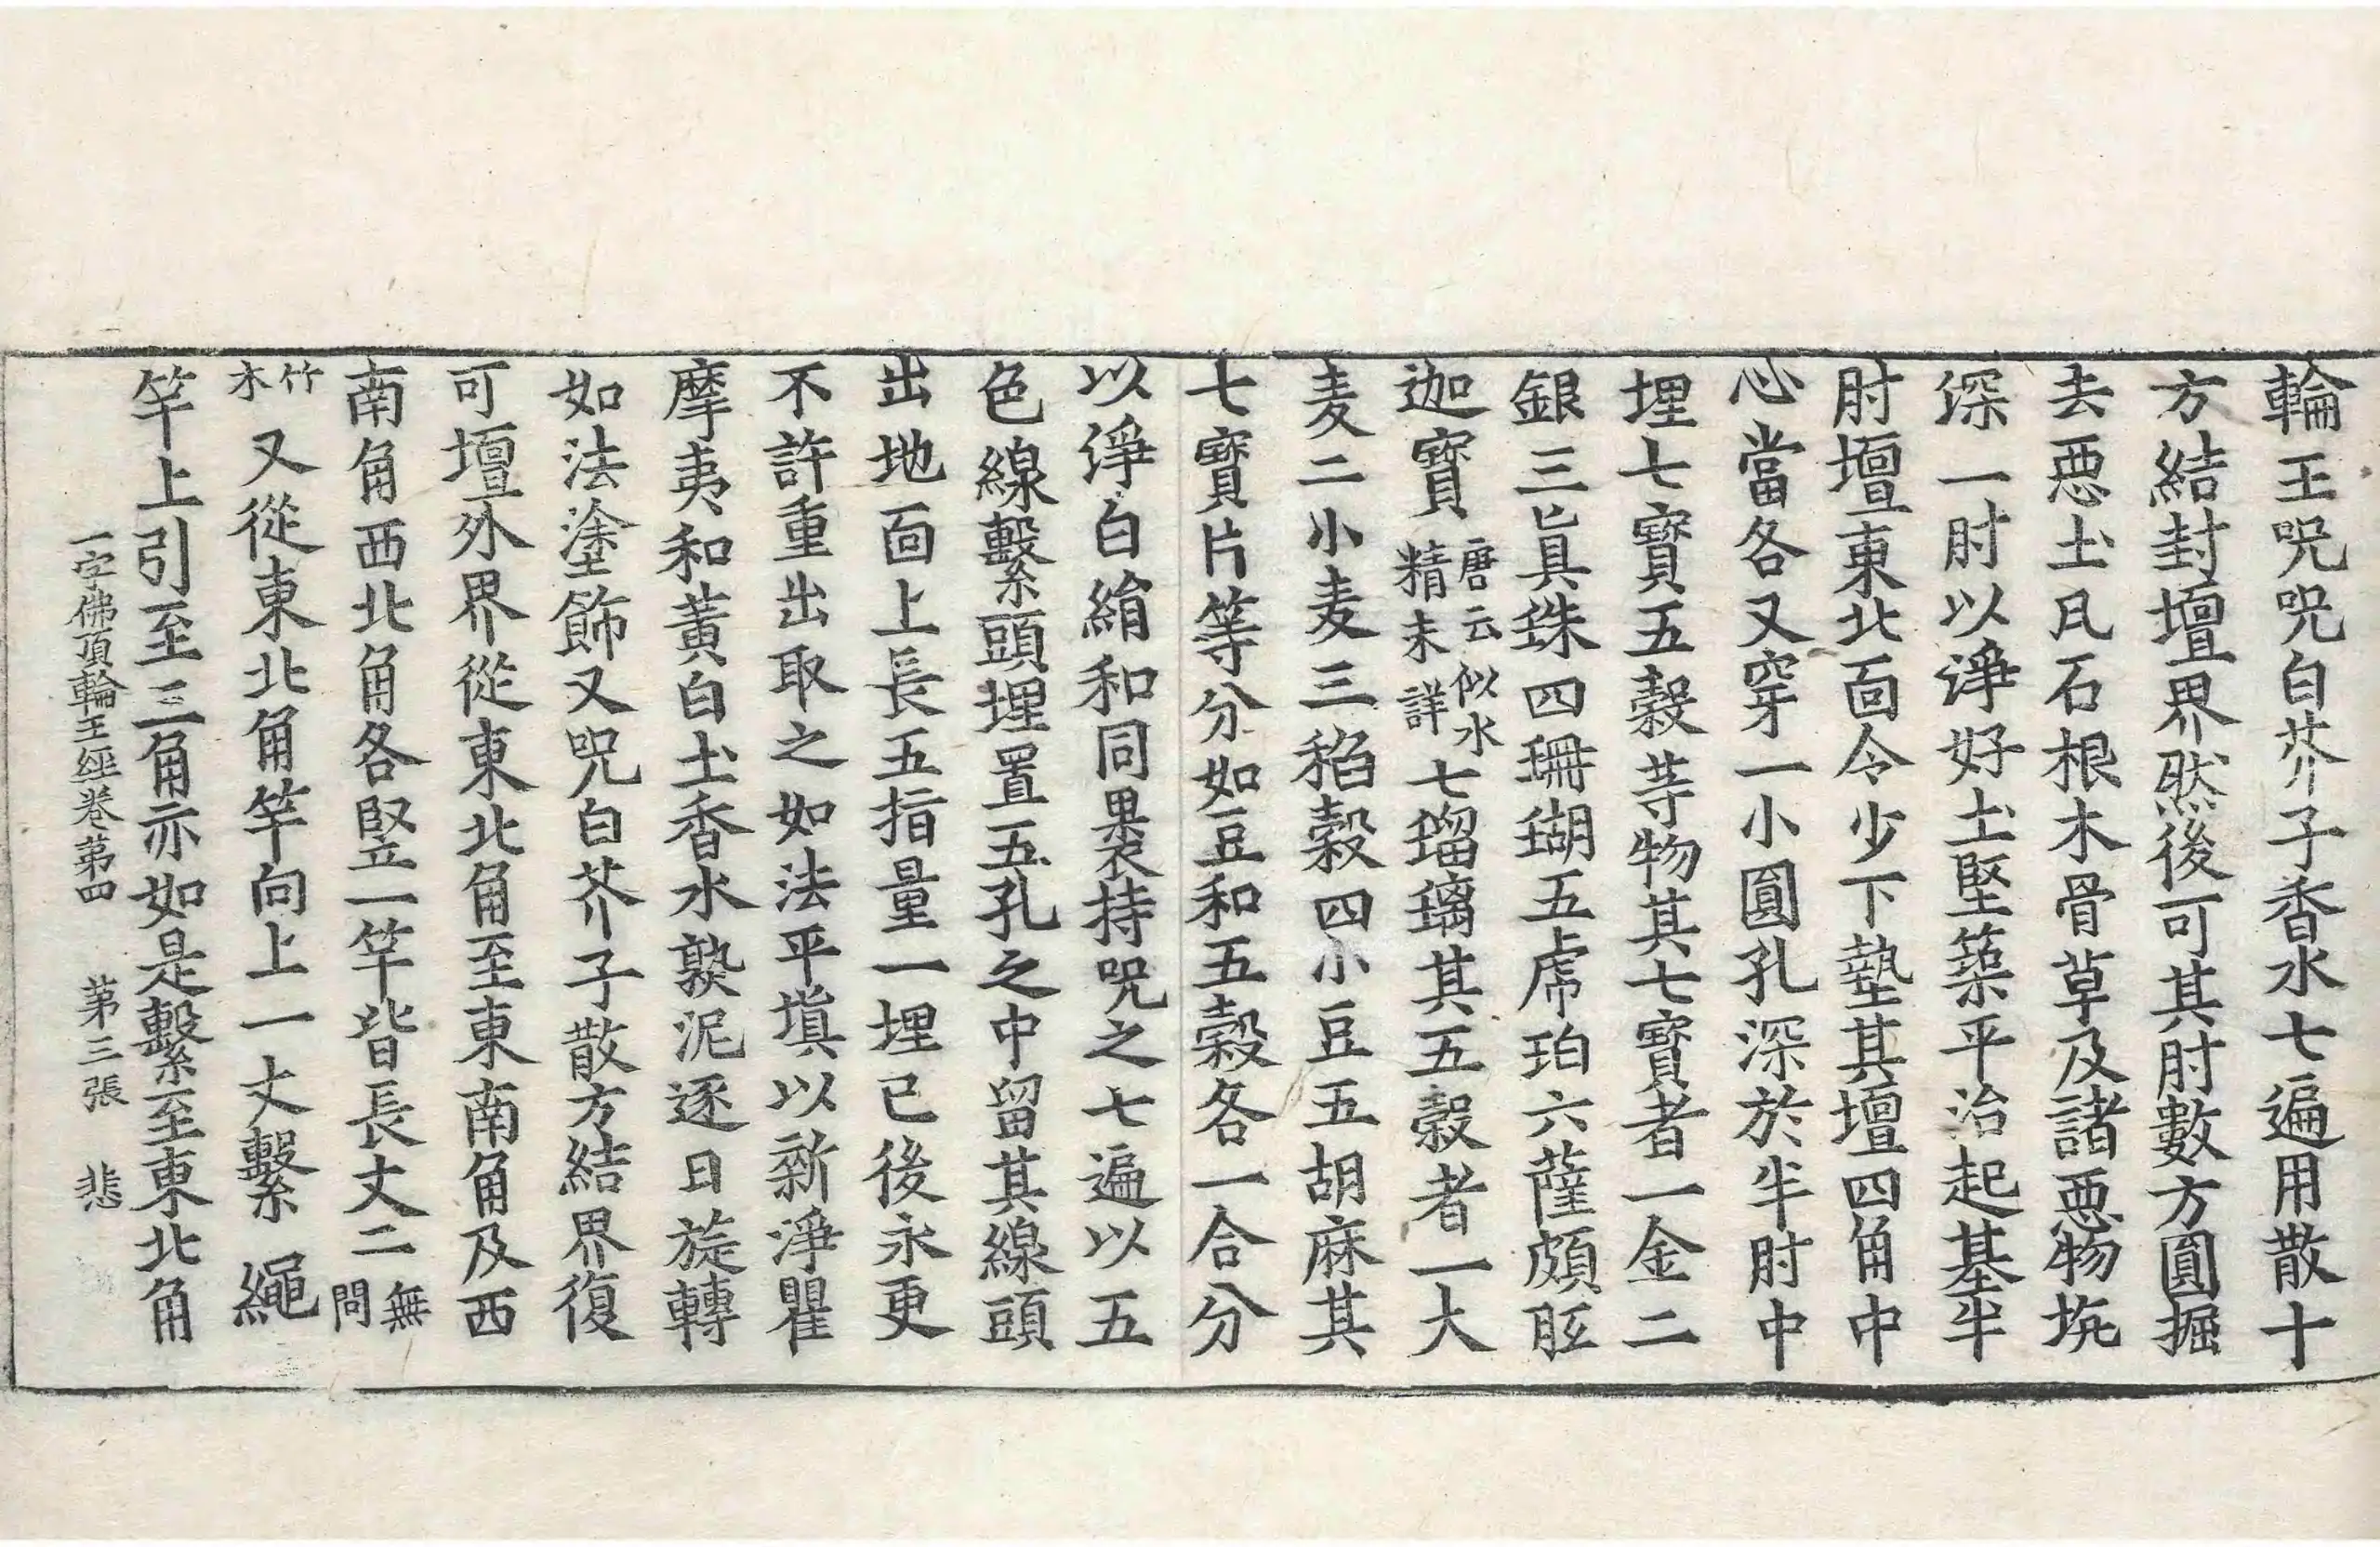 輪王呪呪白芥子香水七遍用散十
方結封壇界然後可其肘數方圓掘
去惡土凡石根木骨草及諸惡物坑
深一肘以淨好土堅築平治起基半
肘壇東北面令少下墊其壇四角中
心當各又穿一小圓孔深於半肘中
埋七寶五穀䓁物其七寶者一金二
銀三眞珠四珊瑚五虎珀六薩頗胝
迦寶唐云似水精未詳七瑠璃其五穀者一大
麦二小麦三稻穀四小豆五胡麻其
七寶片等分如豆和五穀各一合分
以淨白絹和同褁持呪之七遍以五
色線繫頭埋置五孔之中留其線頭
出地面上長五指量一埋已後永更
不許重出取之如法平塡以新淨瞿
摩夷和黃白土香水熟泥逐日旋轉
如法塗飾又呪白芥子散方結界復
可壇外界從東北角至東南角及西
南角西北角各竪一竿皆長丈二無問
竹木又從東北角竿向上一丈繫繩
竿上引至三角亦如是繫至東北角
一字佛頂輪王經卷苐四 苐三張 悲